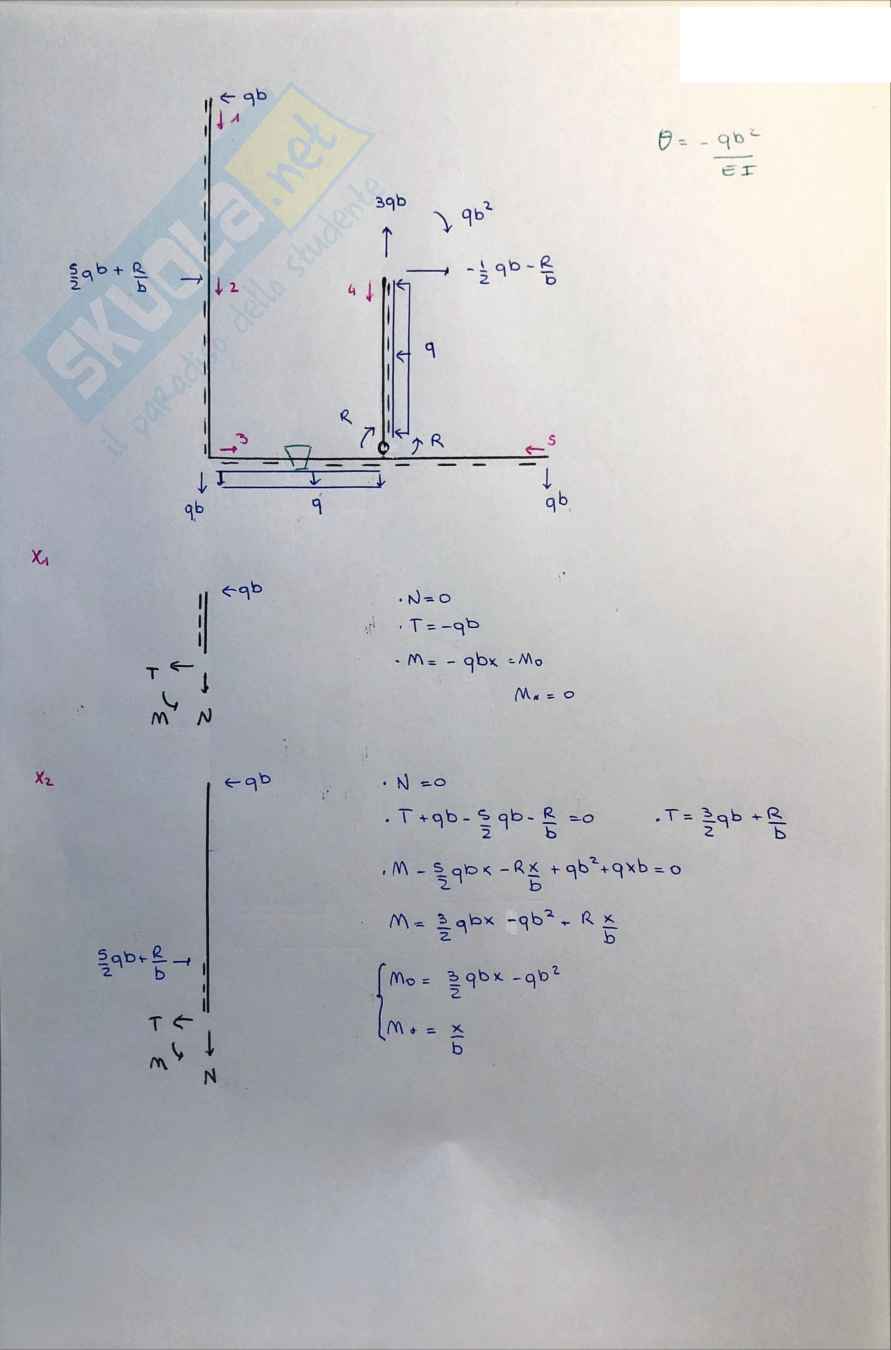 ← qb
↓ 1
θ = - qb² / EI
3qb
qb²
5/2 qb + R/b →
↓ 2
4 ↓
→ - 1/2 qb - R/b
q
R
R
3
5
qb
q
qb
SKUOLA.net
il paradiso dello studente
X₁
← qb
· N = 0
· T = -qb
T ←
· M = - qbx = M₀
M
N
M* = 0
X₂
← qb
· N = 0
· T + qb - 5/2 qb - R/b = 0
· T = 3/2 qb + R/b
· M - 5/2 qbx - R x/b + qb² + qxb = 0
M = 3/2 qbx - qb² + R x/b
5/2 qb + R/b →
M₀ = 3/2 qbx - qb²
T ←
M* = x/b
M
N